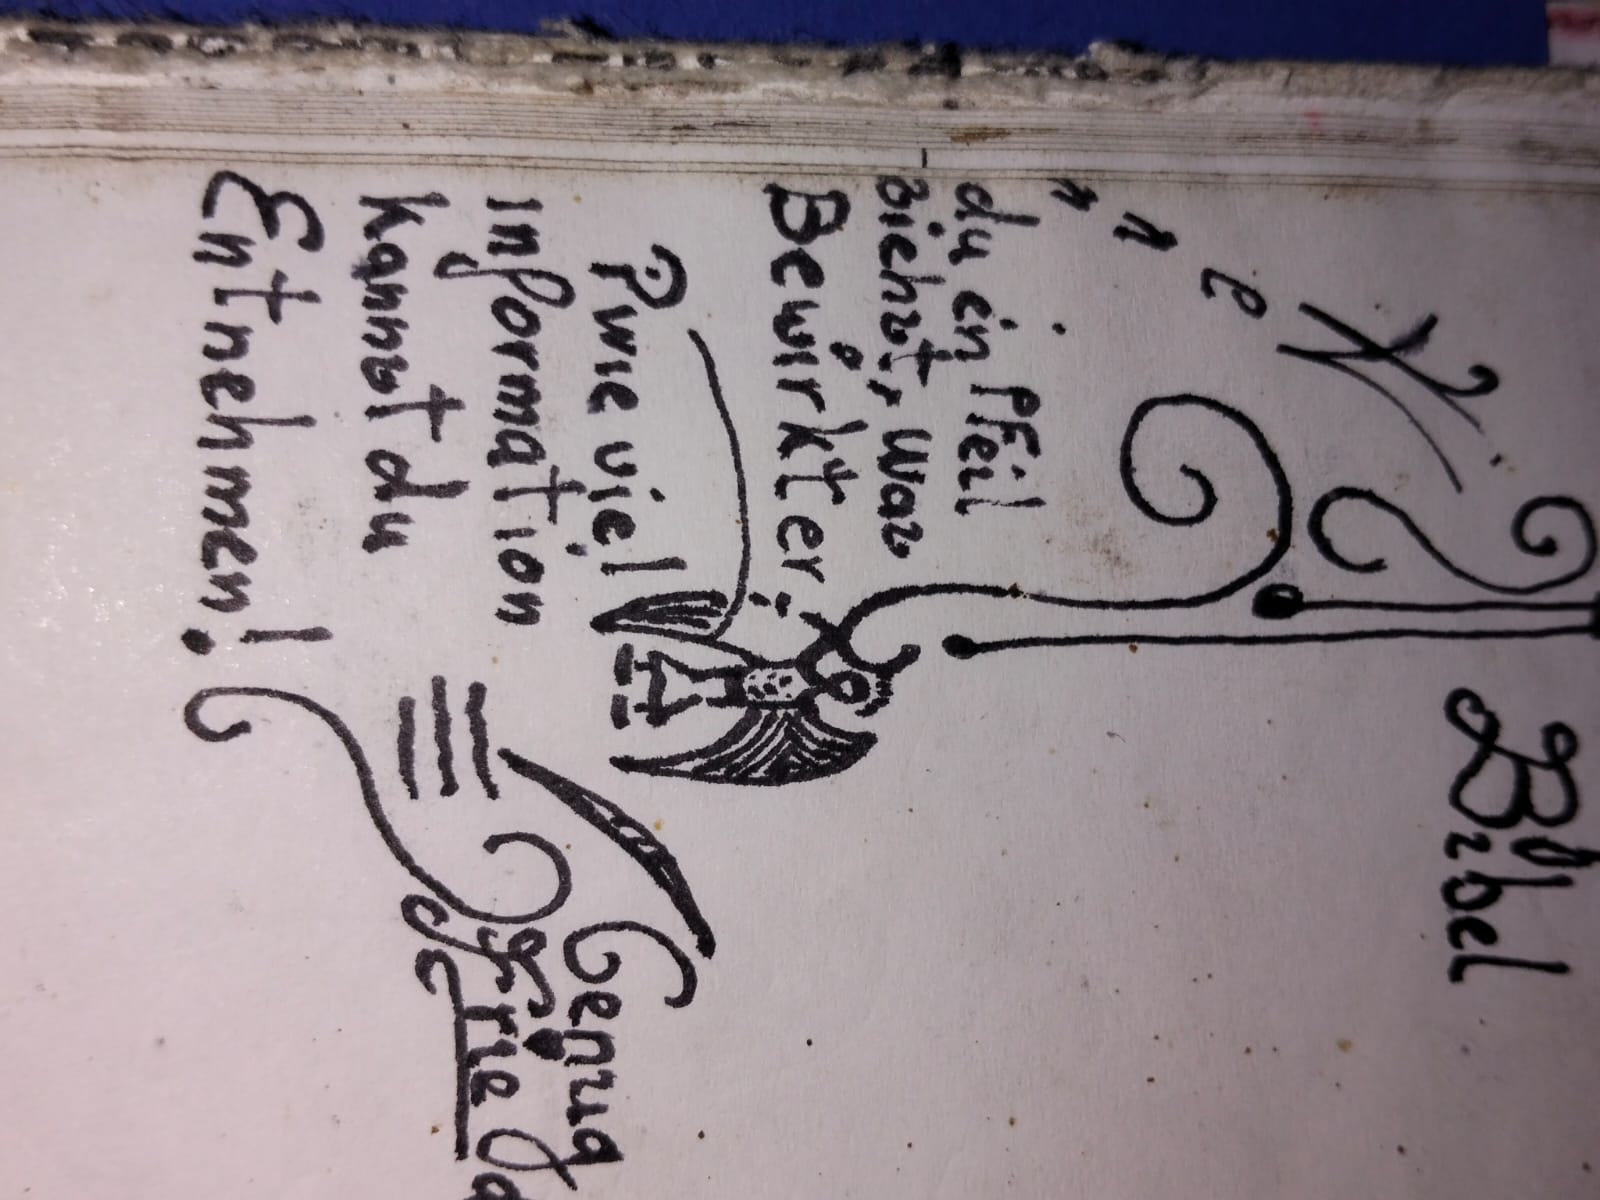 Bibel
Wenn
du ein PFeil
siehst, Was
Bewirkt er;
? wie viel
Information
Kannst du
Entnehmen!
Genug